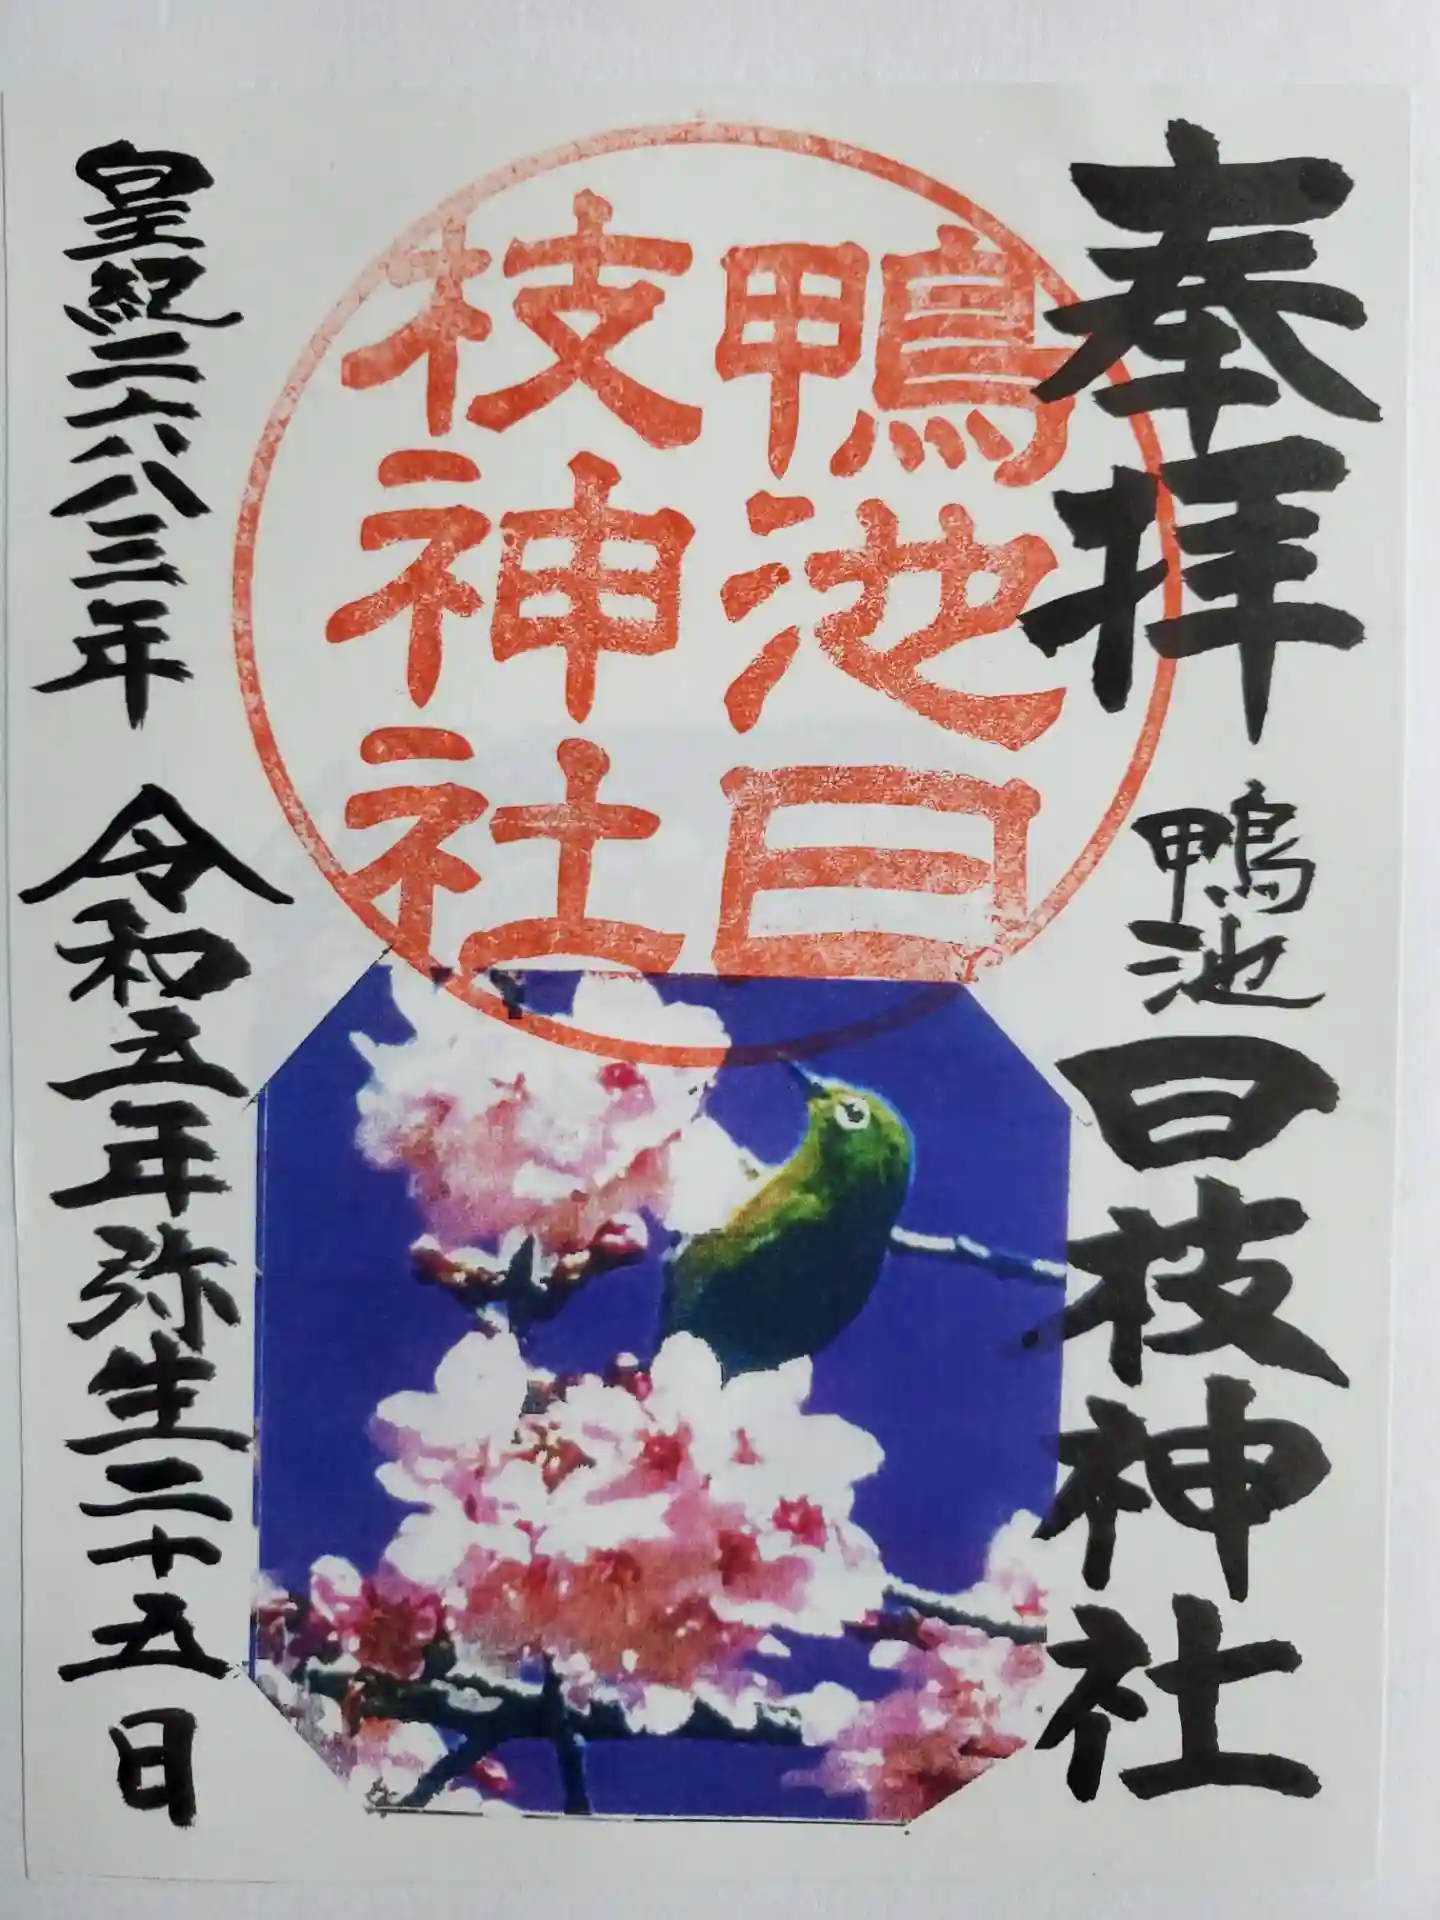 奉拝 鴨池日枝神社
鴨池日
枝神社
皇紀二六八三年 令和五年弥生二十五日